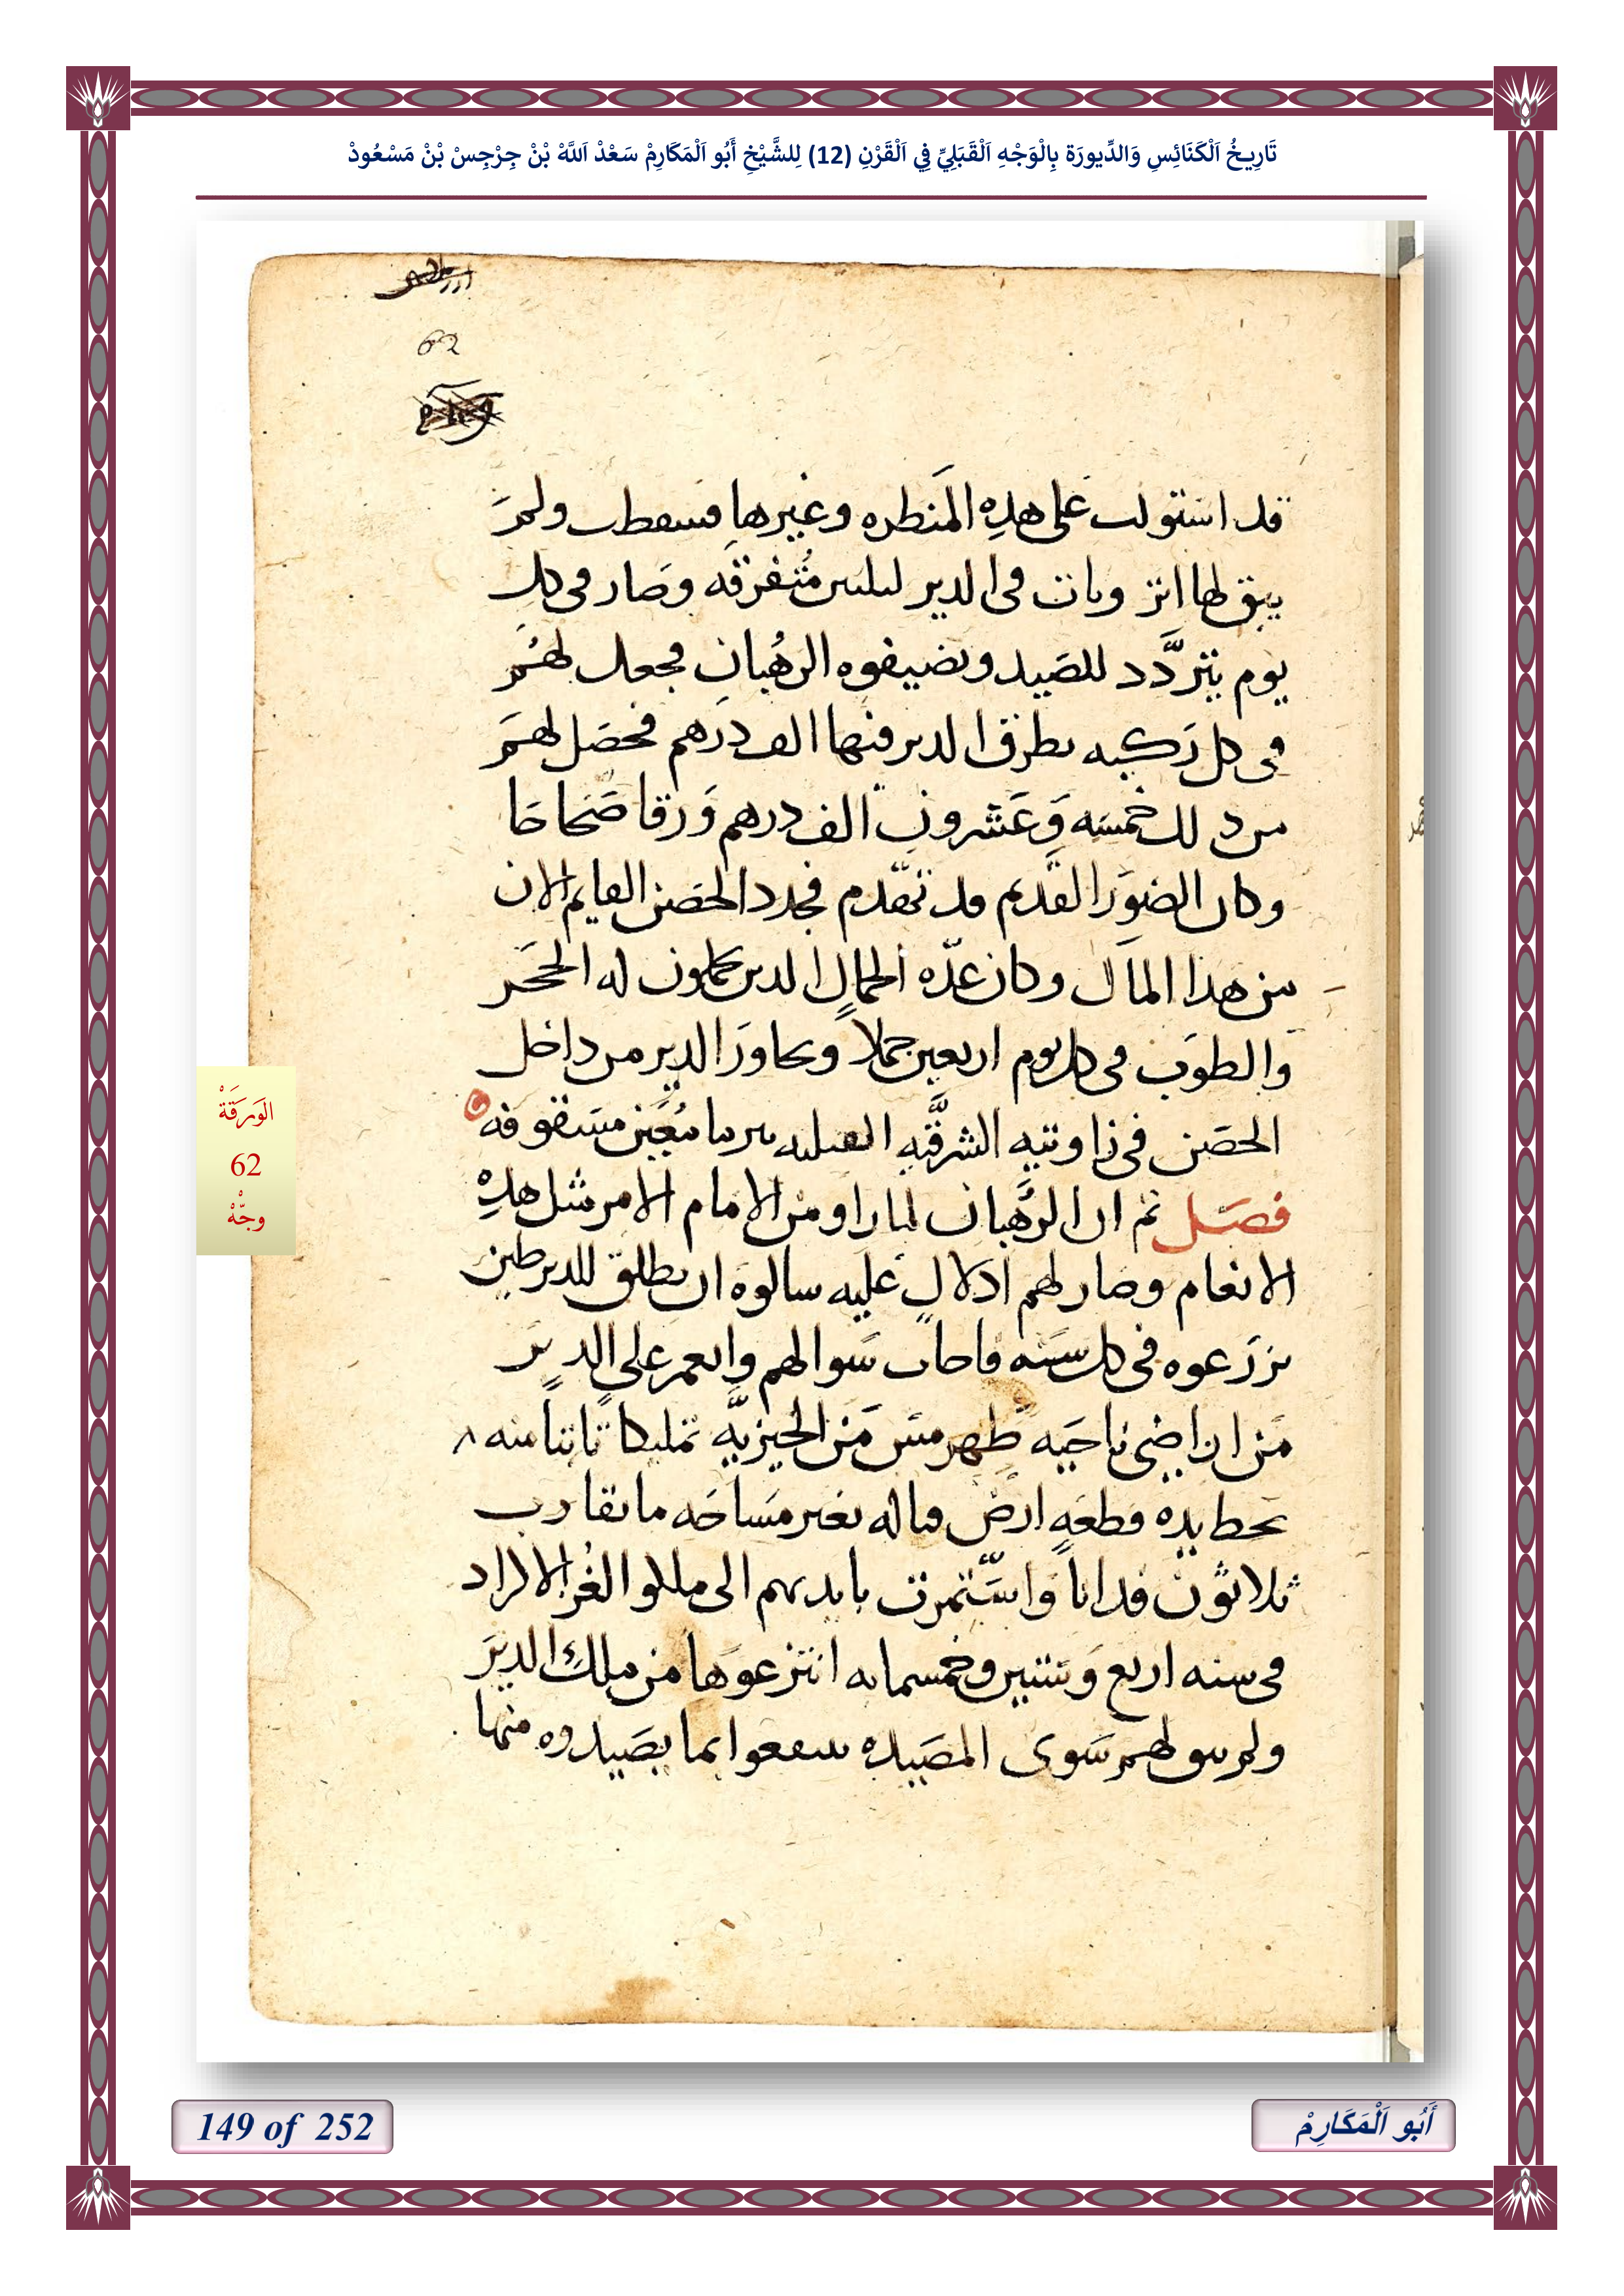 تَارِيخُ اَلْكَنَائِسِ وَالدِّيورَة بِالْوَجْهِ اَلْقَبَلِيِّ فِي اَلْقَرْنِ (12) لِلشَّيْخِ أَبُو اَلْمَكَارِمْ سَعْدْ اَللَّهْ بْنْ جِرْجِسْ بْنْ مَسْعُودْ
62
قد استولت على هذِهِ المَنطره وغيرها فسقطت ولمرَ
يبق لها اثر وبات فى الدير ليلتين مُتفرقه وصَار فى كل
يوم يتردَّد للصَيد ويضيفوه الرهُبان فجعل لهُم
فى كل رَكبه يطرق الدير فيها الف دَرهم فحصَل لهمَ
من ذلك خمسَه وَعَشرون الف درهم وَرقا صَحاحَا
وكان الصوَر القديم قد تقدم فجدد الحصَن القايم الان
من هدا المال وكان عدّه الجمال الدين يحملون له الحجَر
والطوَب فى كل يوم اربعين جملاً ويجاورَ الدير من داخل
الحصَن فى زاويتيه الشرقيَّه القبليه مسَقوفه
فصَل ثم ان الرُهبان لما راو من الامام الامر مثل هذِهِ
الانعام وصار لهم ادلال عَليه سالوه ان يطلق للدير طين
يزرَعوه فى كل سَنه فاجاب سَوالهم وانعم على الديرَ
مَن اراضى ناحيَه طهرمسَ مَن الجيزيَّه تمليكا ثابتاً منه
بحط يده قطعَه ارض قباله بغير مسَاحَه ما تقارب
ثلاثون فداناً وَاستَّمرت بايديهم الى ملكوا الغُز الاكراد
فى سنه اربع وَستين وخمسمايه انتزعوَها من ملك الديرَ
ولم يبق لهم سَوى المصَيده ينتفعوا بما يصَيدوه منها
الوَرَقَةْ
62
وجّهْ
149 of 252
أَبُو اَلْمَكَارِمْ